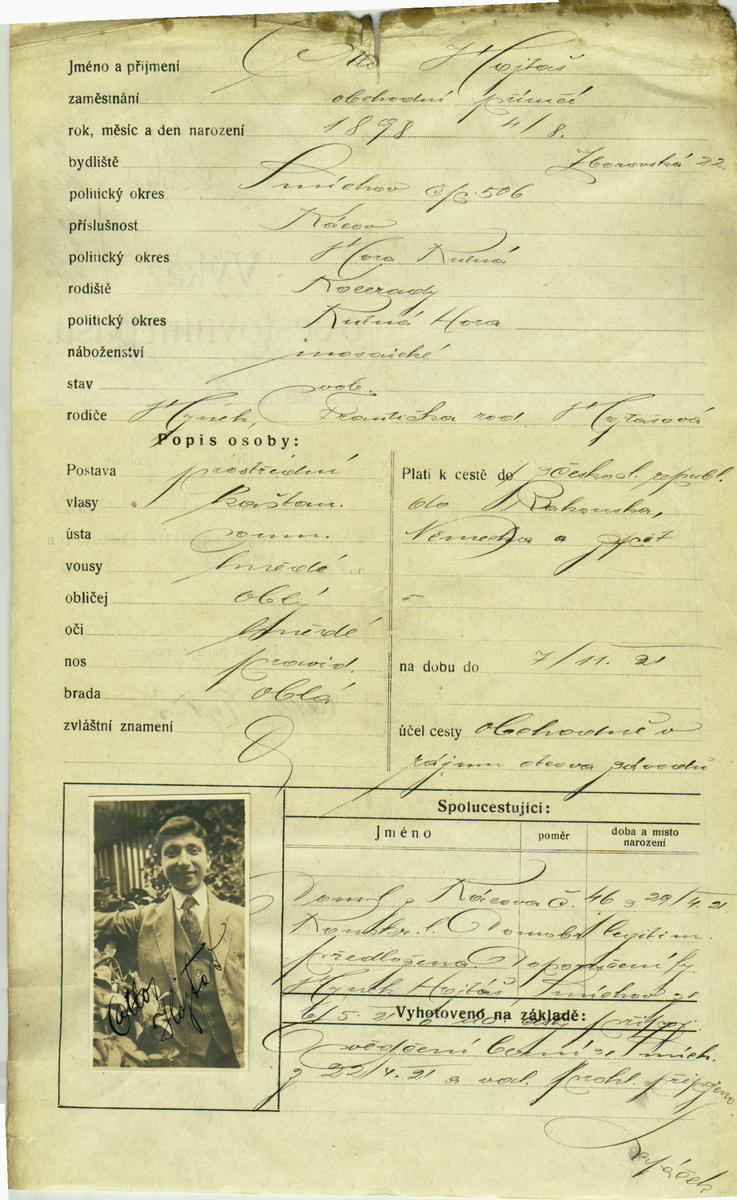 Jméno a příjmení Otto Hojtaš
zaměstnání obchodní příručí
rok, měsíc a den narození 1898 4/8.
bydliště Zborovská 22.
politický okres Smíchov čp. 506
příslušnost Rácov
politický okres Hora Kutná
rodiště Kocerady
politický okres Kutná Hora
náboženství mosaické
stav svob.
rodiče Hynek, Františka rod.
Popis osoby:
Postava prostřední
vlasy kaštan.
ústa soum.
vousy hnědé
obličej oblý
oči hnědé
nos pravid.
brada oblá
zvláštní znamení
Platí k cestě do Českosl. republ.
do Rakouska,
Německa a zpět
na dobu do 7/11. 21
účel cesty obchodně v
zájmu otcova závodu
Otto Hojtaš
Spolucestující:
Jméno poměr doba a místo narození
Domov. z Rácova č. 46 z 29/4. 21
Domobr. legitim.
předložena. Doporučení fy.
Hynek Hojtaš, Smíchov ze
6/5. 21
Vyhotoveno na základě:
z 22/4. 21 a vol. prohl. připojeno